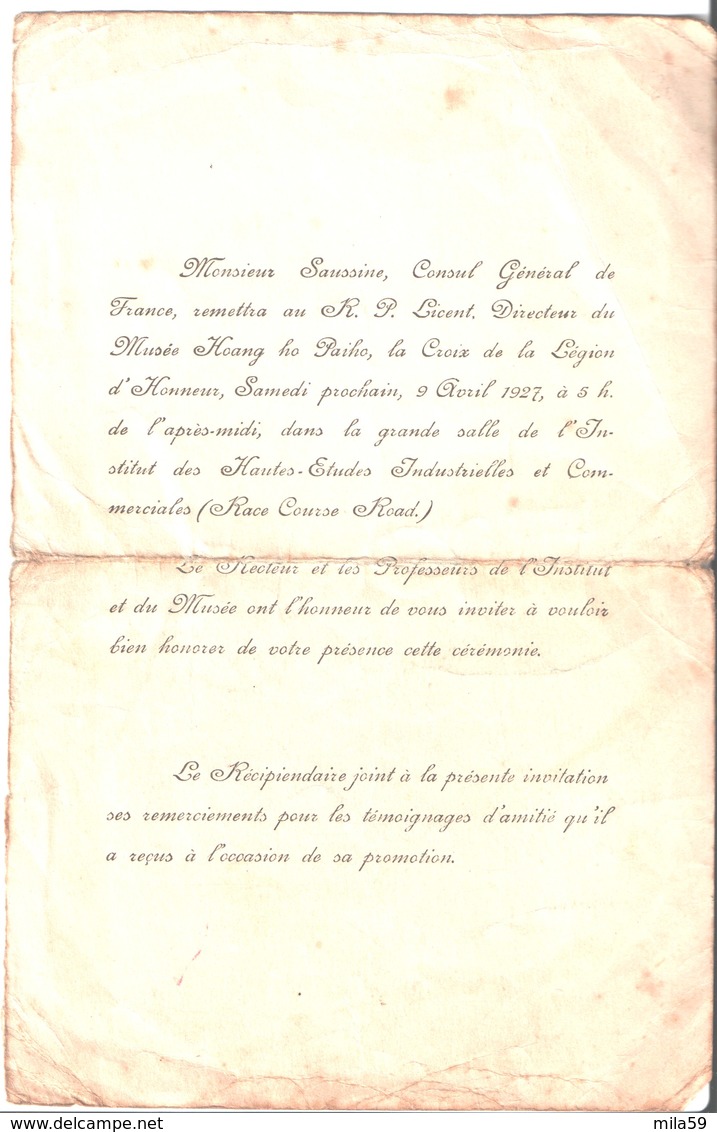 Monsieur Saussine, Consul Général de
France, remettra au R. P. Licent. Directeur du
Musée Hoang ho Paiho, la Croix de la Légion
d'Honneur, Samedi prochain, 9 Avril 1927, à 5 h.
de l'après-midi, dans la grande salle de l'In-
stitut des Hautes-Etudes Industrielles et Com-
merciales (Race Course Road.)
Le Recteur et les Professeurs de l'Institut
et du Musée ont l'honneur de vous inviter à vouloir
bien honorer de votre présence cette cérémonie.
Le Récipiendaire joint à la présente invitation
ses remerciements pour les témoignages d'amitié qu'il
a reçus à l'occasion de sa promotion.
delcampe.net
mila59